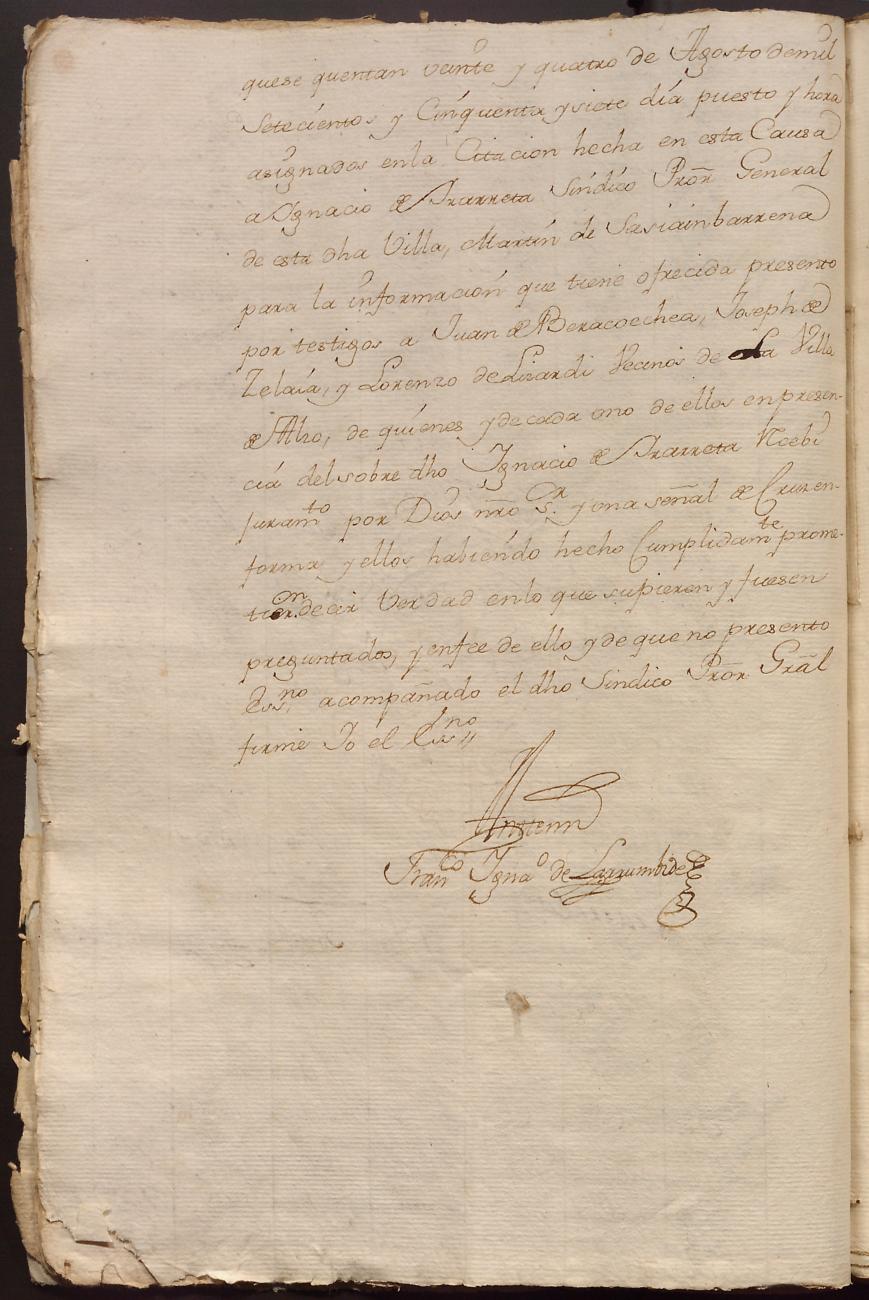 quese quentan veinte y quatro de Agosto demil
Setecientos y Cinquenta y siete dia puesto y hora
asignados enla Citacion hecha en esta Causa
a Ygnacio de Ararreta Sindico Pror̃ General
de esta dha Villa, Martin de Sasiainbarrena
para la informacion que tiene ofrecida presento
por testigos a Juan de Beracoechea, Joseph de
Zelaia, y Lorenzo de Lizardi Vecinos de La Villa
de Alzo, de quienes y de cada uno de ellos en presen-
cia del sobre dho Ygnacio de Ararreta Recebi
Juramto por Dios nr̃o Sr. y una señal de Cruz en-
forma y ellos habiendo hecho Cumplidamte prome-
tieron decir Verdad enlo que supieren y fuesen
preguntados, y enfee de ello y de que no presento
Essno acompañado el dho Sindico Pror̃ Grãl
firme Yo el Essno
Antemi
Franco Ygnao de Larrumbide